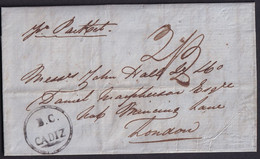 per Packet
2/2
Messrs John Hall & Co
Daniel Macpherson Esqre
Mincing Lane
London
B.C.
CADIZ